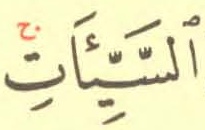 ٱلسَّيِّـَٔاتِ ج